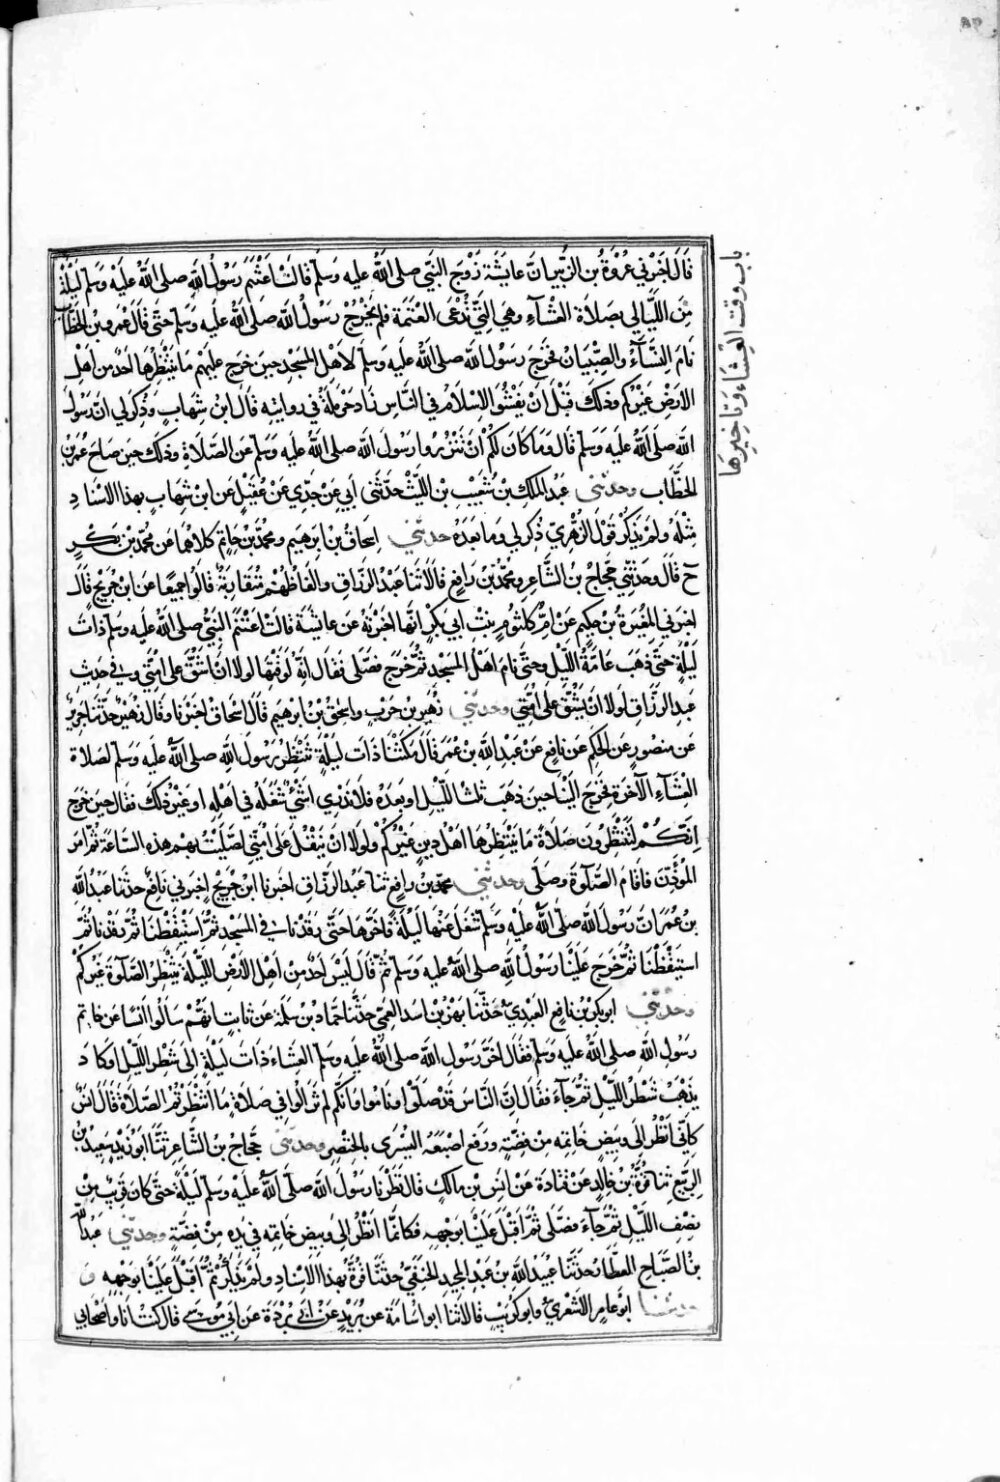 باب وقت العشاء وتاخيرها
قال اخبرني عروة بن الزبير ان عايشة زوج النبي صلى الله عليه وسلم قالت اعتم رسول الله صلى الله عليه وسلم ليلة
من الليالي بصلاة العشآء وهي التي تدعى العتمة فلم يخرج رسول الله صلى الله عليه وسلم حتى قال عمر بن الخطاب
نام النسآء والصبيان فخرج رسول الله صلى الله عليه وسلم لاهل المسجد حين خرج عليهم ما ينتظرها احد من اهل
الارض غيركم وذلك قبل ان يفشو الاسلام في الناس زاد حرملة في روايته قال ابن شهاب وذكر لي ان رسول
الله صلى الله عليه وسلم قال وما كان لكم ان تنزروا رسول الله صلى الله عليه وسلم عن الصلاة وذلك حين صاح عمر بن
الخطاب وحدثني عبد الملك بن شعيب بن الليث حدثني ابي عن جدي عن عقيل عن ابن شهاب بهذا الاسناد
مثله ولم يذكر قول الزهري ذكر لي وما بعده حدثني اسحاق بن ابرهيم ومحمد بن حاتم كلاهما عن محمد بن بكر
ح قال وحدثني حجاج بن الشاعر ومحمد بن رافع قالا ثنا عبد الرزاق والفاظهم متقاربة قالوا جميعا عن ابن جريج قال
اخبرني المغيرة بن حكيم عن ام كلثوم بنت ابي بكر انها اخبرته عن عائشة قالت اعتم النبي صلى الله عليه وسلم ذات
ليلة حتى ذهب عامة الليل وحتى نام اهل المسجد ثم خرج فصلى فقال انه لوقتها لولا ان اشق على امتي وفي حديث
عبد الرزاق لولا ان يشق على امتي وحدثني زهير بن حرب واسحق بن ابرهيم قال اسحاق اخبرنا وقال زهير حدثنا جرير
عن منصور عن الحكم عن نافع عن عبد الله بن عمر قال مكثنا ذات ليلة ننتظر رسول الله صلى الله عليه وسلم لصلاة
العشآء الآخرة فخرج الينا حين ذهب ثلث الليل او بعده فلا ندري اشئ شغله في اهله او غير ذلك فقال حين خرج
انكم لتنتظرون صلاة ما ينتظرها اهل دين غيركم ولولا ان يثقل على امتي لصليت بهم هذه الساعة ثم امر
المؤذن فاقام الصلوة وصلى وحدثني محمد بن رافع ثنا عبد الرزاق اخبرنا ابن جريج اخبرني نافع حدثنا عبد الله
بن عمر ان رسول الله صلى الله عليه وسلم شغل عنها ليلة فاخرها حتى رقدنا في المسجد ثم استيقظنا ثم رقدنا ثم
استيقظنا ثم خرج علينا رسول الله صلى الله عليه وسلم ثم قال ليس احد من اهل الارض الليلة ينتظر الصلوة غيركم
وحدثني ابو بكر بن نافع العبدي حدثنا بهز بن اسد العمي حدثنا حماد بن سلمة عن ثابت انهم سالوا انسا عن خاتم
رسول الله صلى الله عليه وسلم فقال اخر رسول الله صلى الله عليه وسلم العشاء ذات ليلة الى شطر الليل او كاد
يذهب شطر الليل ثم جآء فقال ان الناس قد صلوا وناموا وانكم لم تزالوا في صلاة ما انتظرتم الصلاة قال انس
كاني انظر الى وبيص خاتمه من فضة ورفع اصبعه اليسرى بالخنصر وحدثني حجاج بن الشاعر ثنا ابو زيد سعيد بن
الربيع ثنا قرة بن خالد عن قتادة عن انس بن مالك قال نظرنا رسول الله صلى الله عليه وسلم ليلة حتى كان قريب من
نصف الليل ثم جآء فصلى ثم اقبل علينا بوجهه فكانما انظر الى وبيص خاتمه في يده من فضة وحدثني عبد الله
بن الصباح العطار حدثنا عبيد الله بن عبد المجيد الحنفي حدثنا قرة بهذا الاسناد ولم يذكر ثم اقبل علينا بوجهه و
حدثنا ابو عامر الاشعري وابو كريب قالا ثنا ابو اسامة عن بريد عن ابي بردة عن ابي موسى قال كنت انا واصحابي